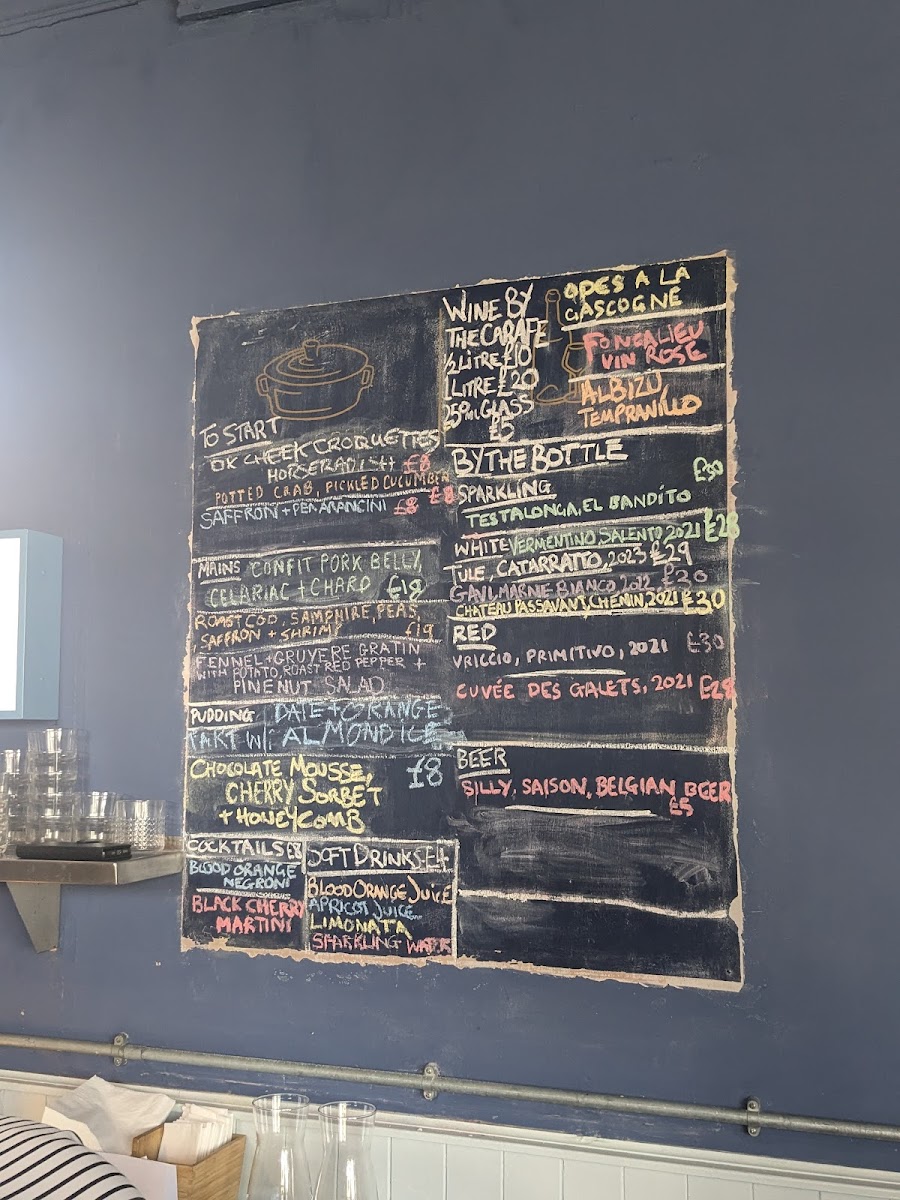 TO START
OX CHEEK CROQUETTES
HORSERADISH £8
POTTED CRAB, PICKLED CUCUMBER £8
SAFFRON + PEA ARANCINI £8
MAINS CONFIT PORK BELLY,
CELARIAC + CHARD £18
ROAST COD, SAMPHIRE, PEAS,
SAFFRON + SHRIMP £19
FENNEL + GRUYERE GRATIN
WITH POTATO, ROAST RED PEPPER +
PINE NUT SALAD
PUDDING DATE + ORANGE
TART W/ ALMOND ICE
CHOCOLATE MOUSSE, £8
CHERRY SORBET
+ HONEYCOMB
COCKTAILS £8
BLOOD ORANGE
NEGRONI
BLACK CHERRY
MARTINI
SOFT DRINKS £4
BLOOD ORANGE JUICE
APRICOT JUICE
LIMONATA
SPARKLING WATER
WINE BY
THE CARAFE
1/2 LITRE £10
1 LITRE £20
250ml GLASS
£5
OPES A LÂ
GASCOGNE
FONCALIEU
VIN ROSE
ALBIZU
TEMPRANILLO
BY THE BOTTLE
SPARKLING £30
TESTALONGA, EL BANDÍTO
WHITE VERMENTINO, SALENTO, 2021 £28
TULE, CATARRATTO, 2023 £29
GAVI, MARNE BIANCO 2022 £30
CHATEAU PASSAVANT, CHENIN 2021 £30
RED
VRICCIO, PRIMITIVO, 2021 £30
CUVÉE DES GALETS, 2021 £28
BEER
SILLY, SAISON, BELGIAN BEER
£5